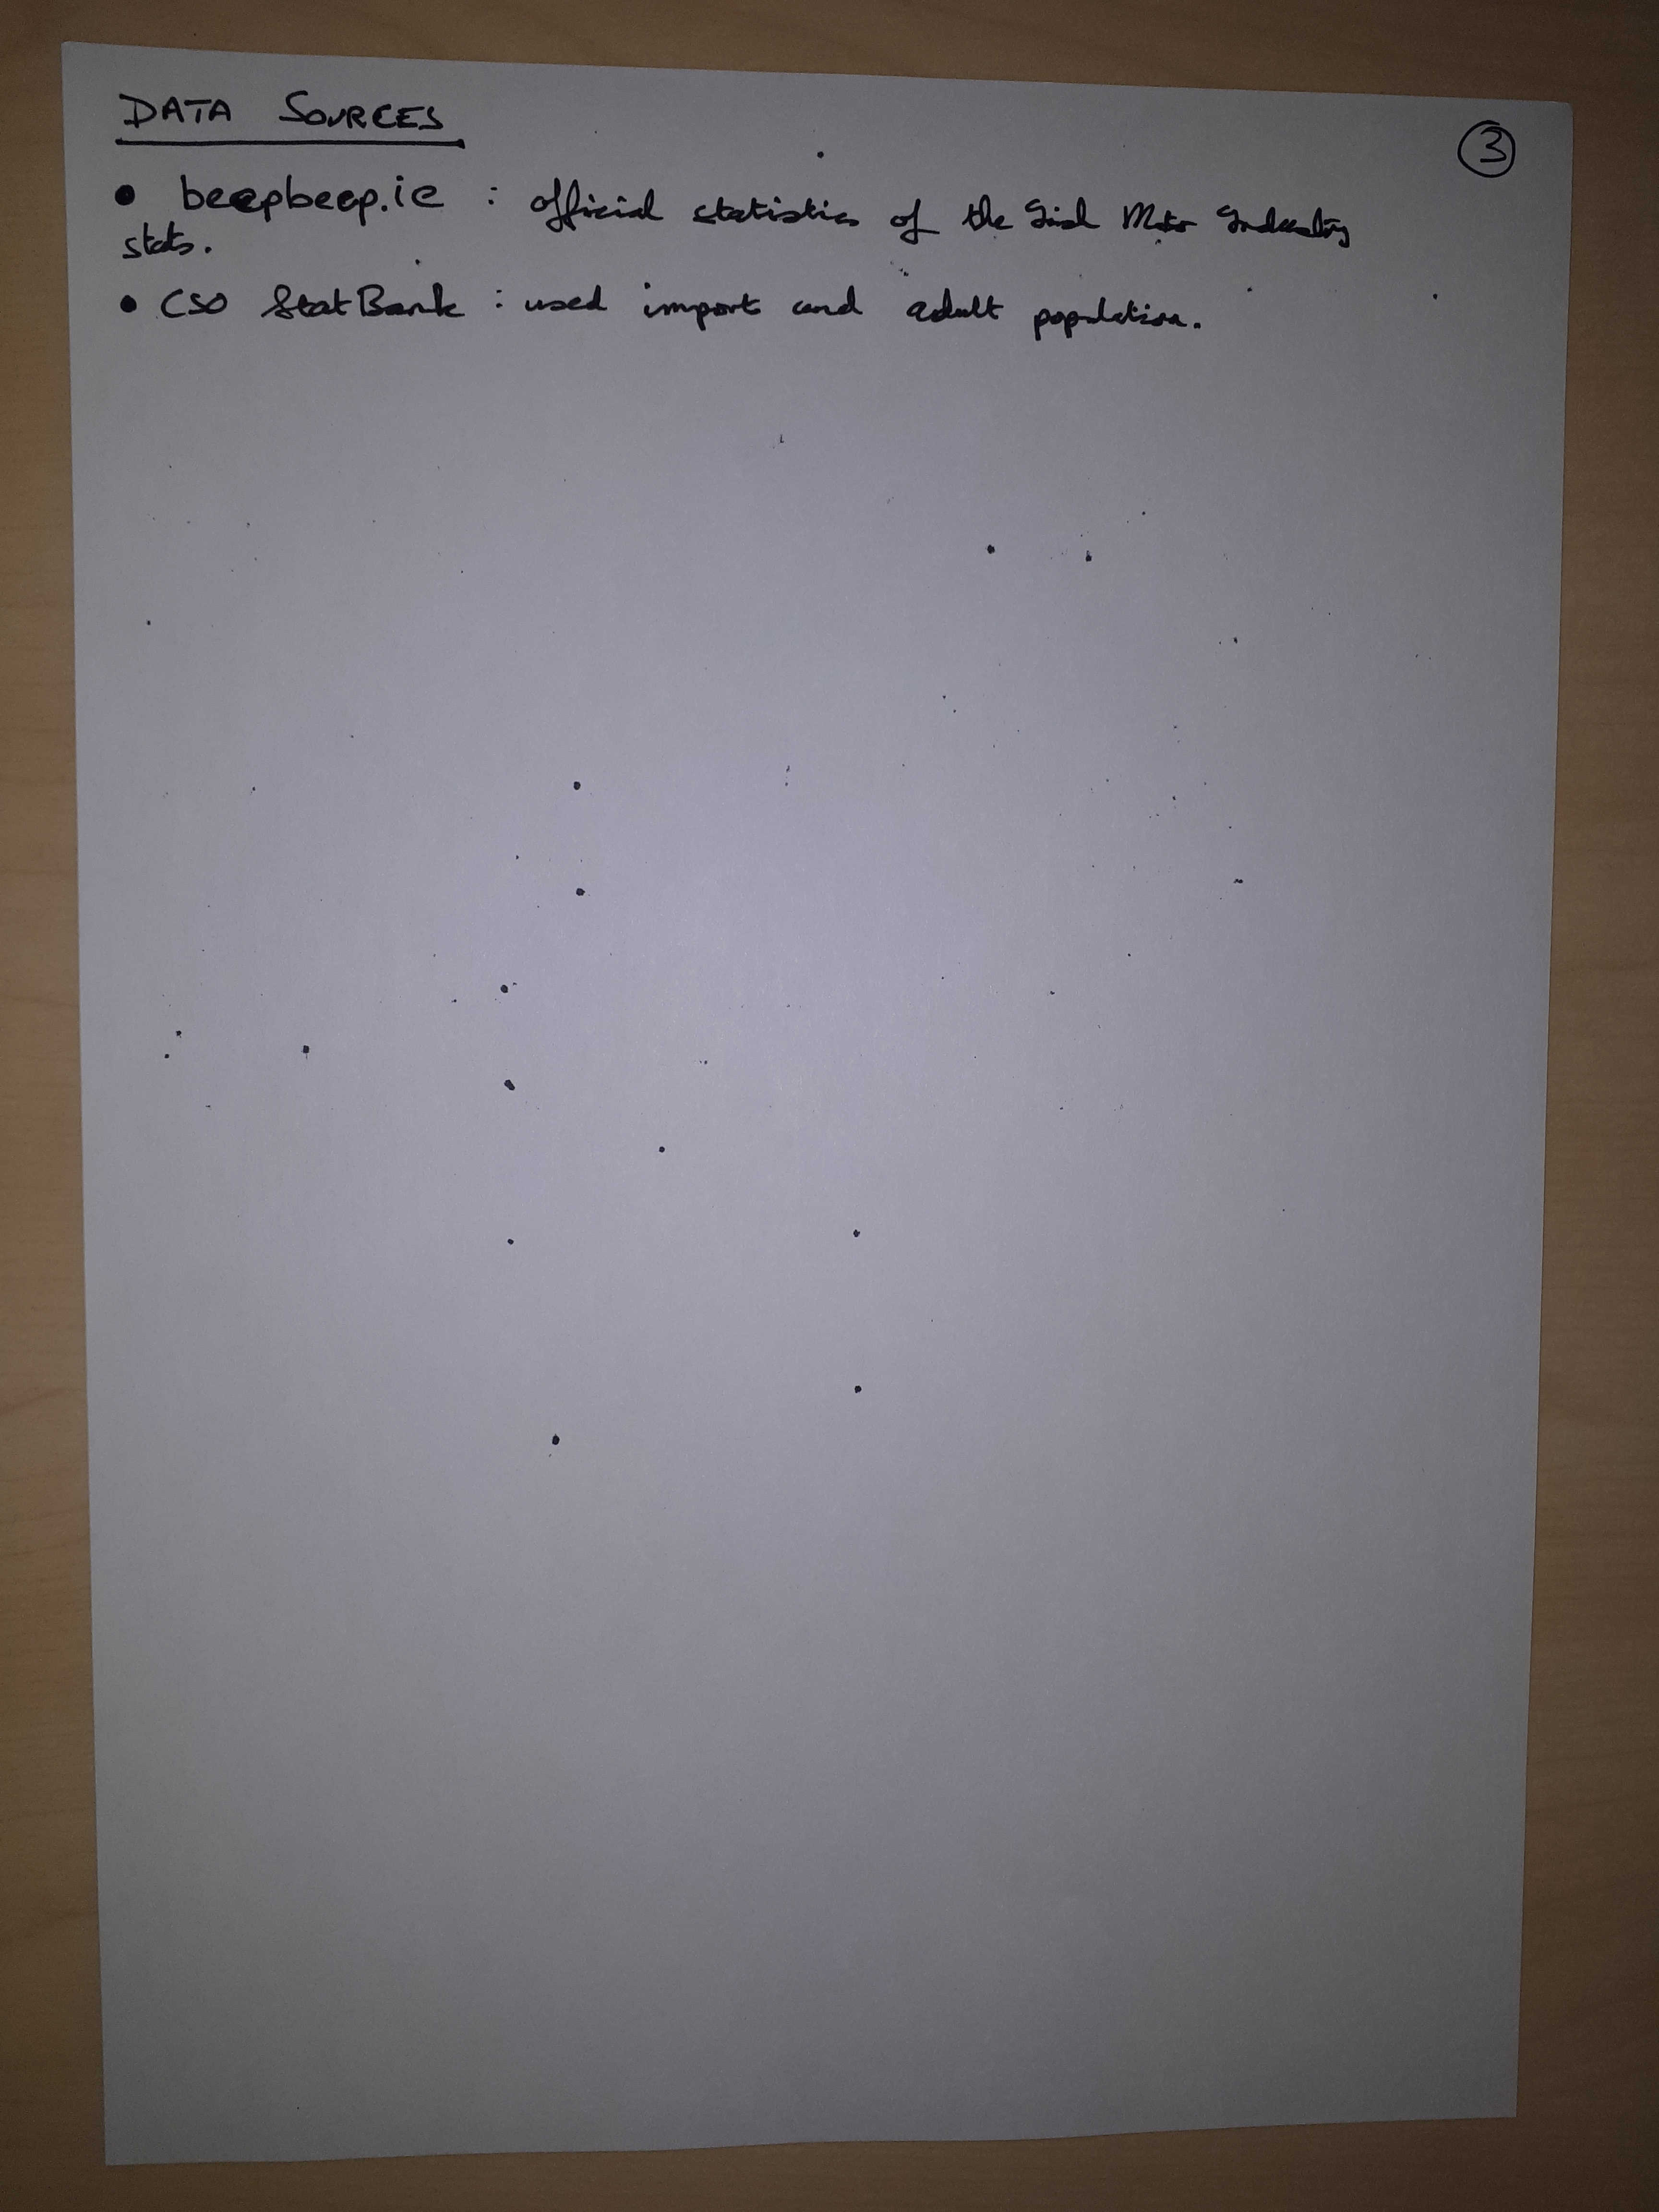 DATA SOURCES
3
• beepbeep.ie : official statistics of the Irish Motor Industry
stats.
• CSO StatBank : used import and adult population.